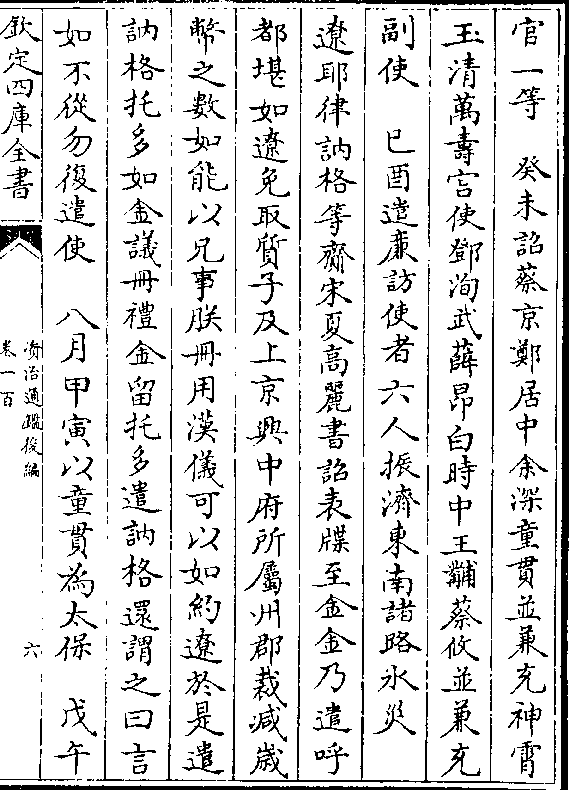 官一等　癸未詔蔡京鄭居中余深童貫並兼充神霄
玉清萬壽宮使鄧洵武薛昂白時中王黼蔡攸並兼充
副使　已酉遣廉訪使者六人振濟東南諸路水災
遼耶律訥格等齎宋夏高麗書詔表牒至金金乃遣呼
都堪如遼免取質子及上京興中府所屬州郡裁減歲
幣之數如能以兄事朕冊用漢儀可以如約遼於是遣
訥格托多如金議冊禮金留托多遣訥格還謂之曰言
如不從勿復遣使　八月甲寅以童貫為太保　戊午
欽定四庫全書
資治通鑑後編
卷一百
六